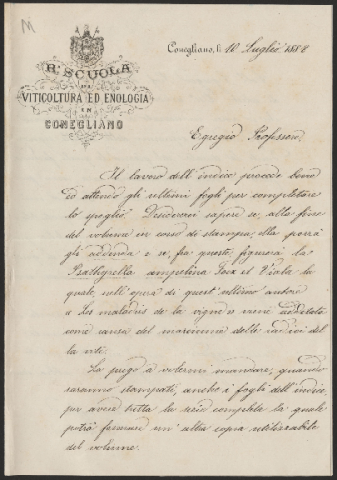 M
Conegliano, li 10 Luglio 1888
R.ª SCUOLA
DI
VITICOLTURA ED ENOLOGIA
IN
CONEGLIANO
Egregio Professore
Il lavoro dell'indice procede bene
ed attendo gli ultimi fogli per completare
lo spoglio. Desidererei sapere se, alla fine
del volume in corso di stampa, ella porrà
gli addenda e se, fra questi, figurerà la
Psathyrella ampelina Foex et Viala la
quale, nell'opera di quest'ultimo autore
« Les maladies de la vigne » viene additata
come causa del marciume delle radici del
la vite.
La prego a volermi mandare, quando
saranno stampati, anche i fogli dell'indice,
per avere tutta la serie completa la quale
potrà formare un'altra copia utilizzabile
del volume.